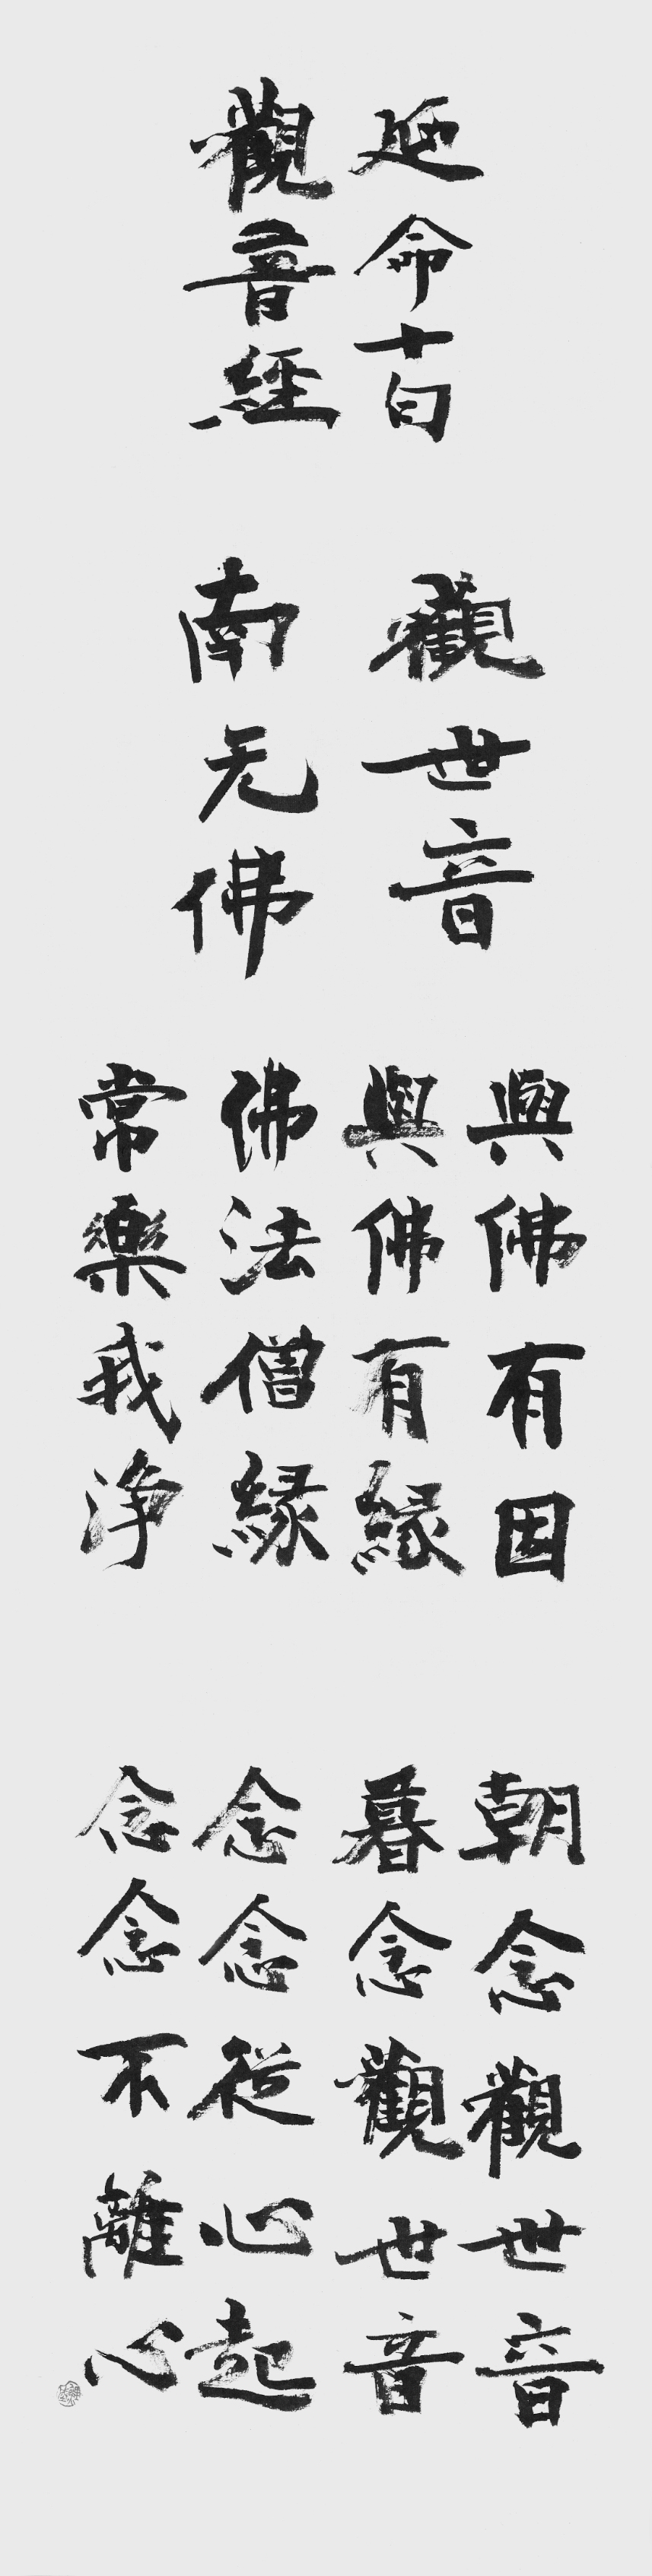 延命十句
觀音經
觀世音
南无佛
與佛有因
與佛有緣
佛法僧緣
常樂我淨
朝念觀世音
暮念觀世音
念念從心起
念念不離心